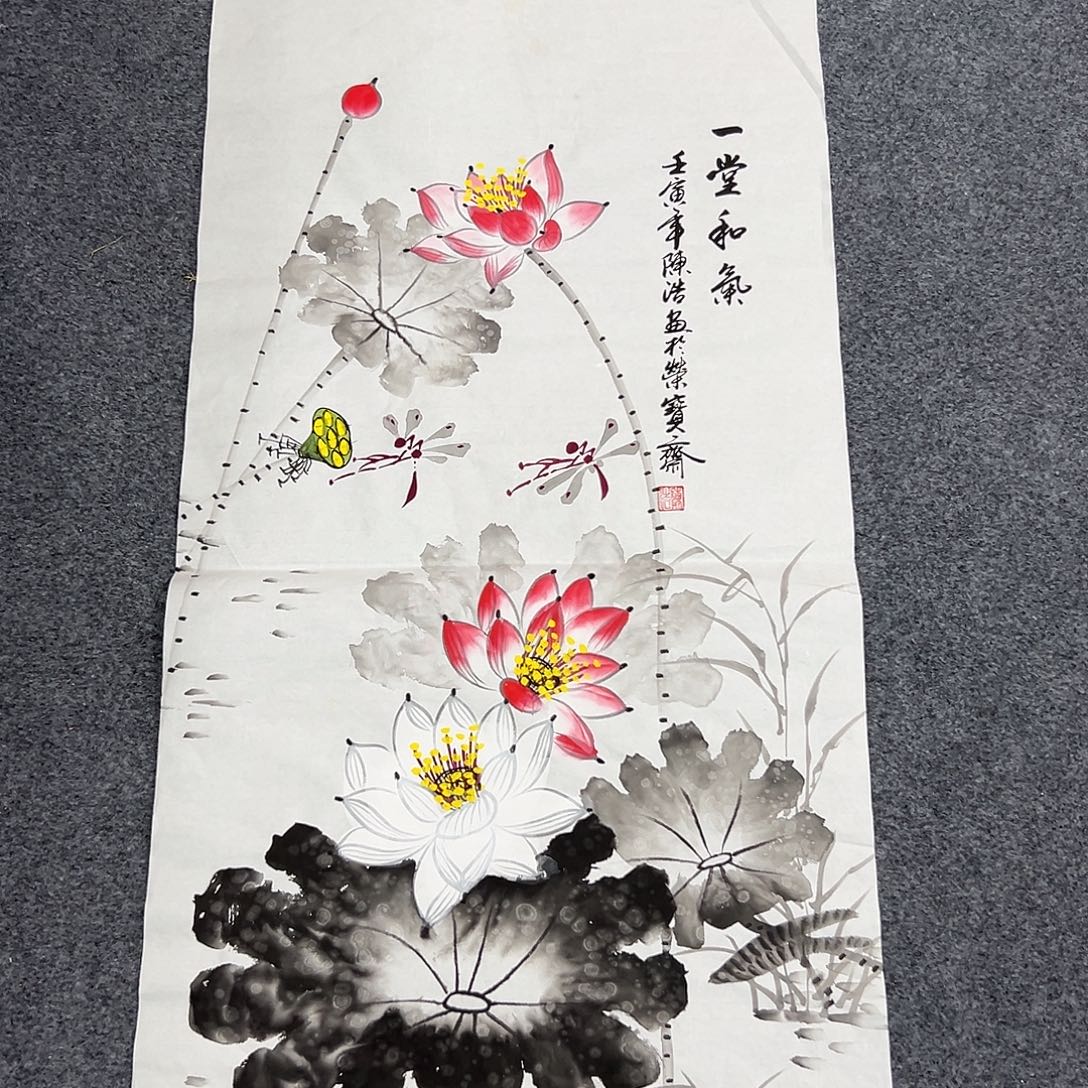 一堂和氣
壬寅年陳浩畫於榮寶齋